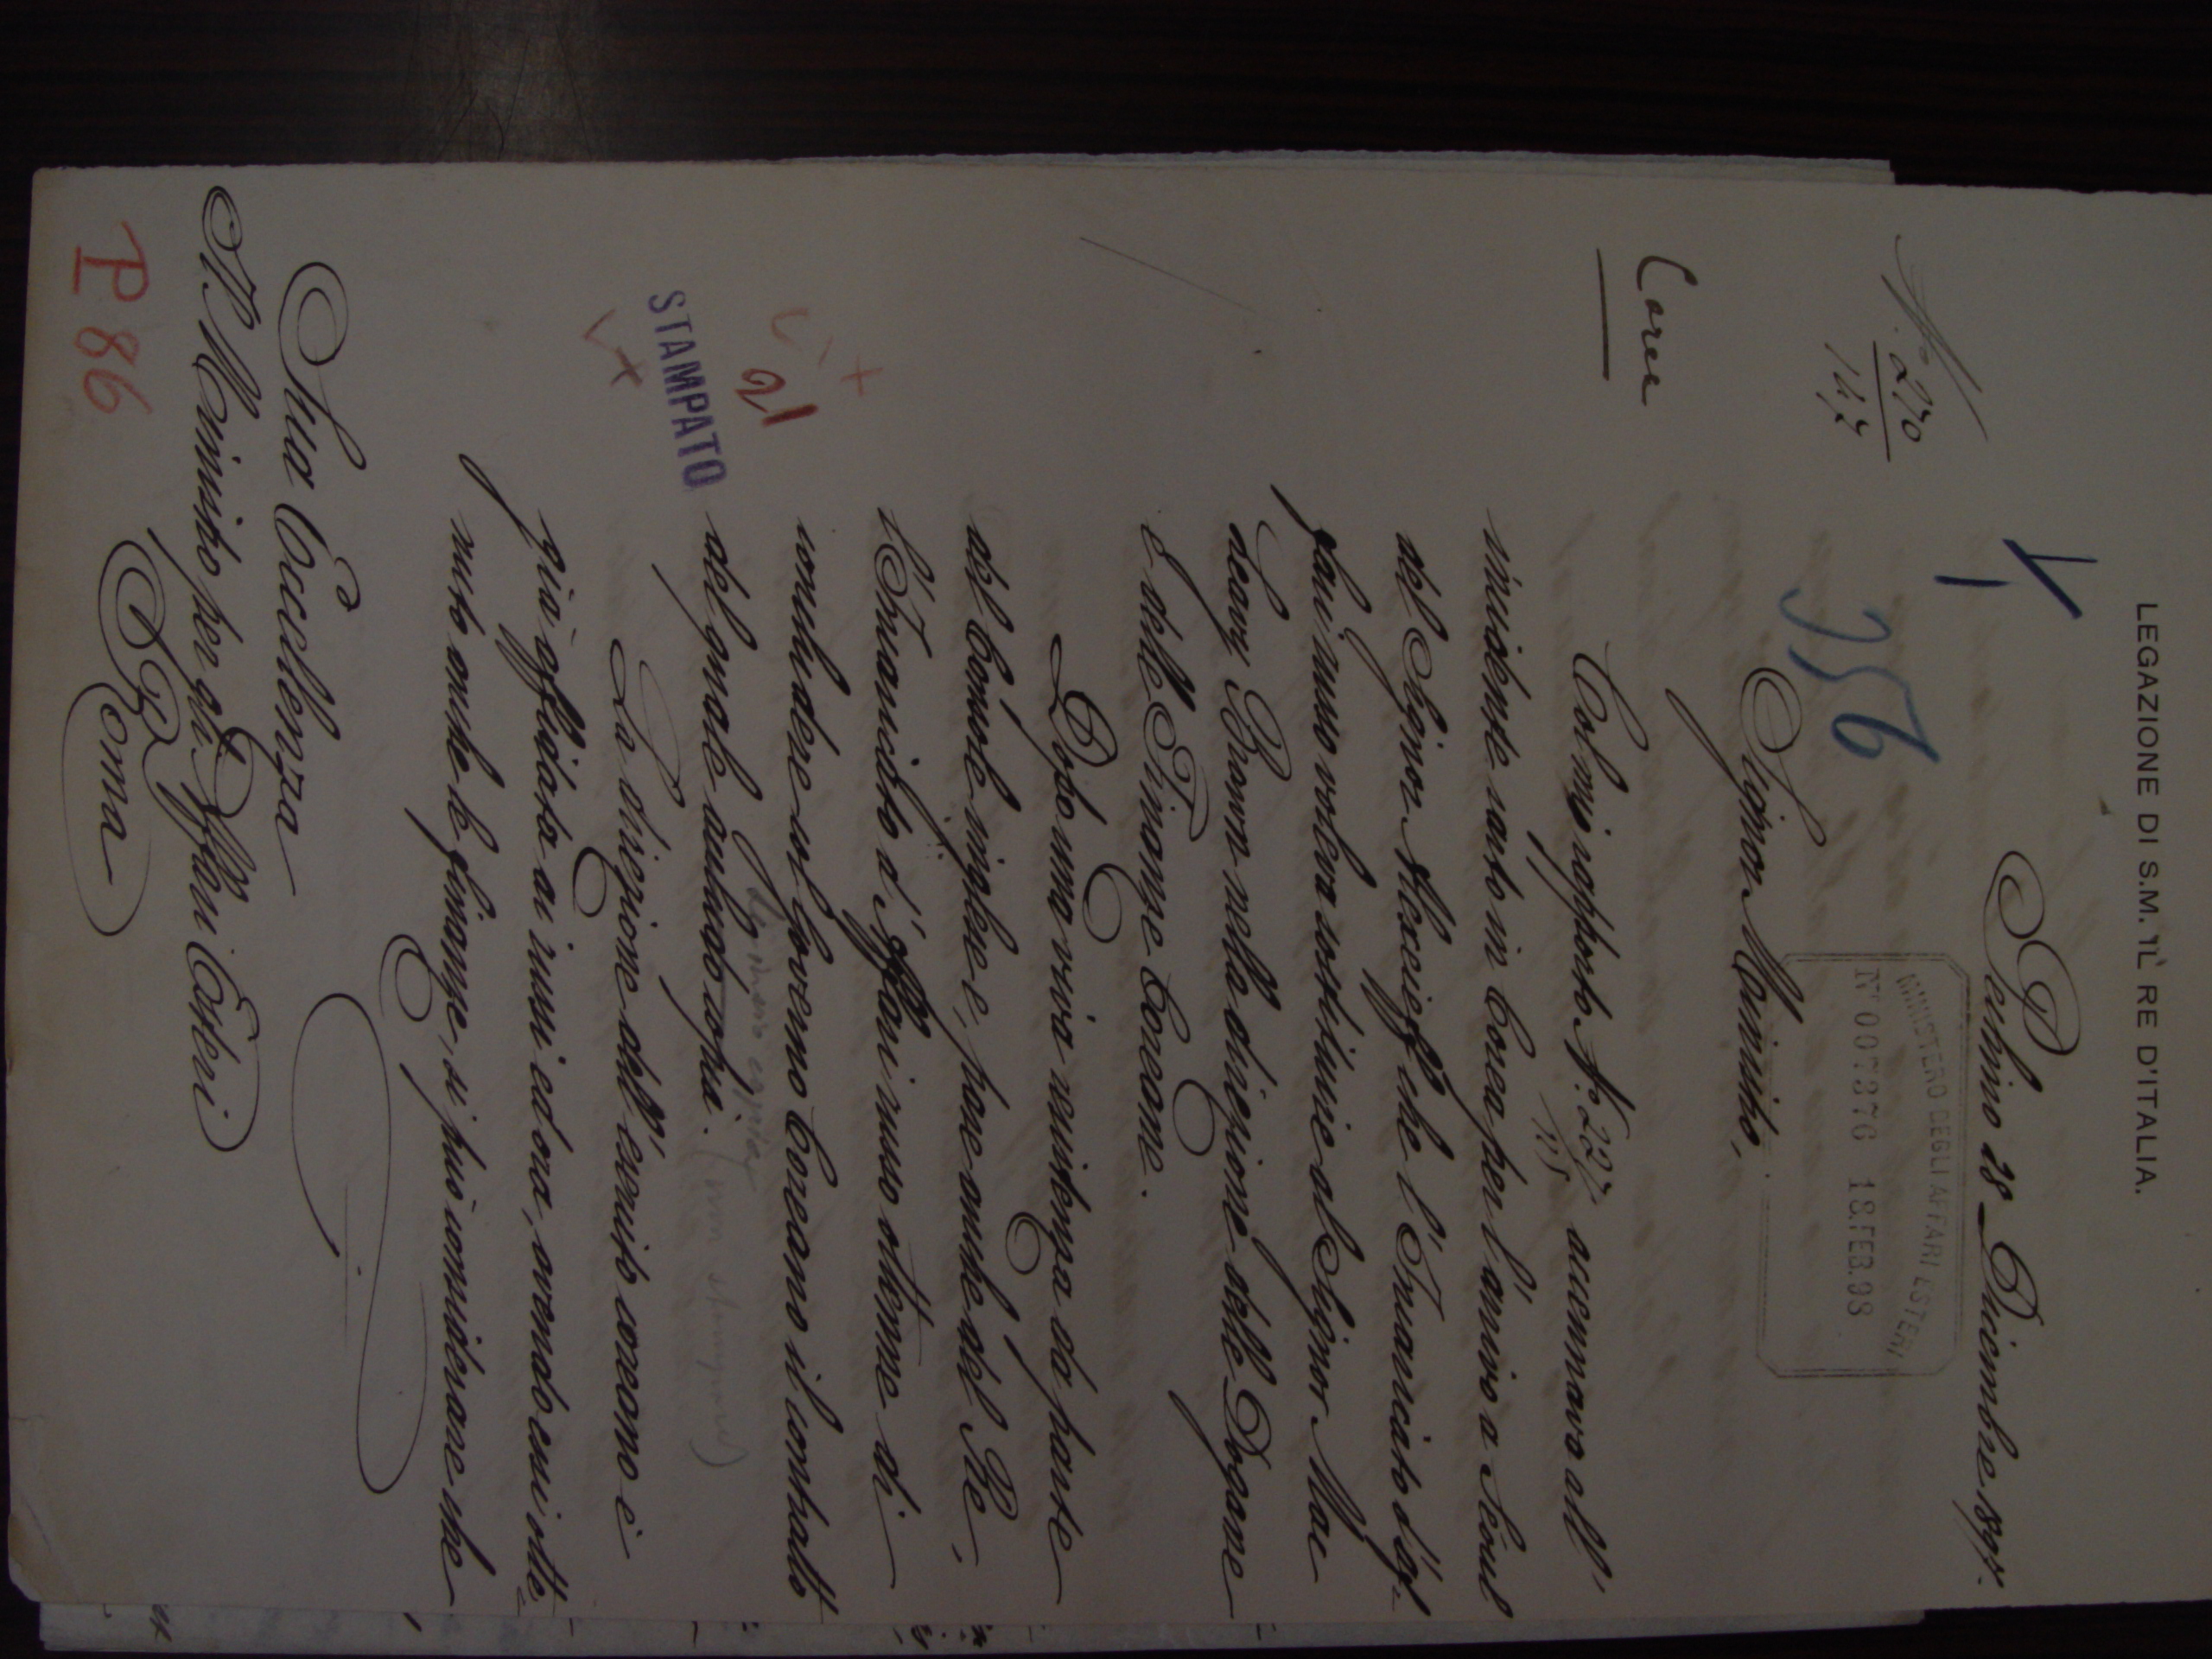 LEGAZIONE DI S.M. IL RE D'ITALIA.
Pechino 28 Dicembre 1897.
N.° 270
147
356
MINISTERO DEGLI AFFARI ESTERI
N° 007376 18.FEB.98
Signor Ministro,
Corea
Col mio rapporto N. 227/115 accennavo all'
incidente sorto in Corea per l'arrivo a Séoul
del Signor Alexeieff che l'Incaricato d'Af-
fari russo voleva sostituire al Signor Mac
Leavy Brown nella direzione delle Dogane
e delle Finanze Coreane.
Dopo una viva resistenza da parte
del Console inglese e, pare anche del Re,
l'Incaricato d'Affari russo ottenne di
conchiudere col Governo Coreano il contratto
del quale acchiudo copia. (non stampare)
STAMPATO
21
La direzione dell'esercito coreano è
già affidata ai russi ed ora, avendo essi otte-
nuto anche le finanze, si può considerare che
Sua Eccellenza
Il Ministro per gli Affari Esteri
Roma
P 86